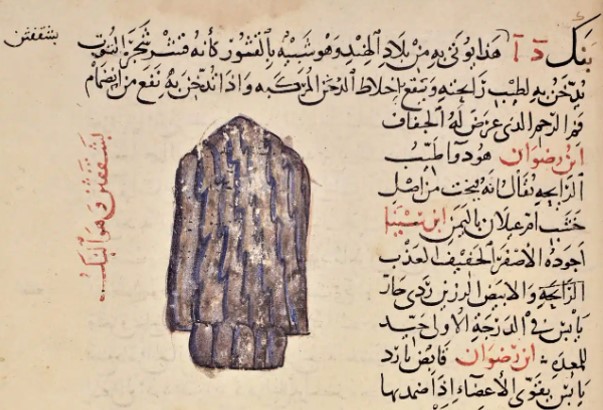 بنك د آ هذا يوتى به من بلاد الهند وهو شبيه بالقشور كانه قشر شجرة التوت
بشقفتن
يدخن به لطيب رائحته ويقع اخلاط الدخن المركبه واذا تدخن به نفع من انضمام
فم الرحم الذي عرض له الجفاف
ابن رضوان هو دوا طيب
الرايحه يقال انه ينحت من اصل
خشب ام غيلان باليمن ابن سينا
اجوده الاصفر الخفيف العذب
الرايحة والابيض الرزين ردي حار
يابس في الدرجة الاولى جيد
للمعده ابن رضوان قابض بارد
يابس يقوي الأعضاء اذا ضمد بها
بشقفتن وهو البنك